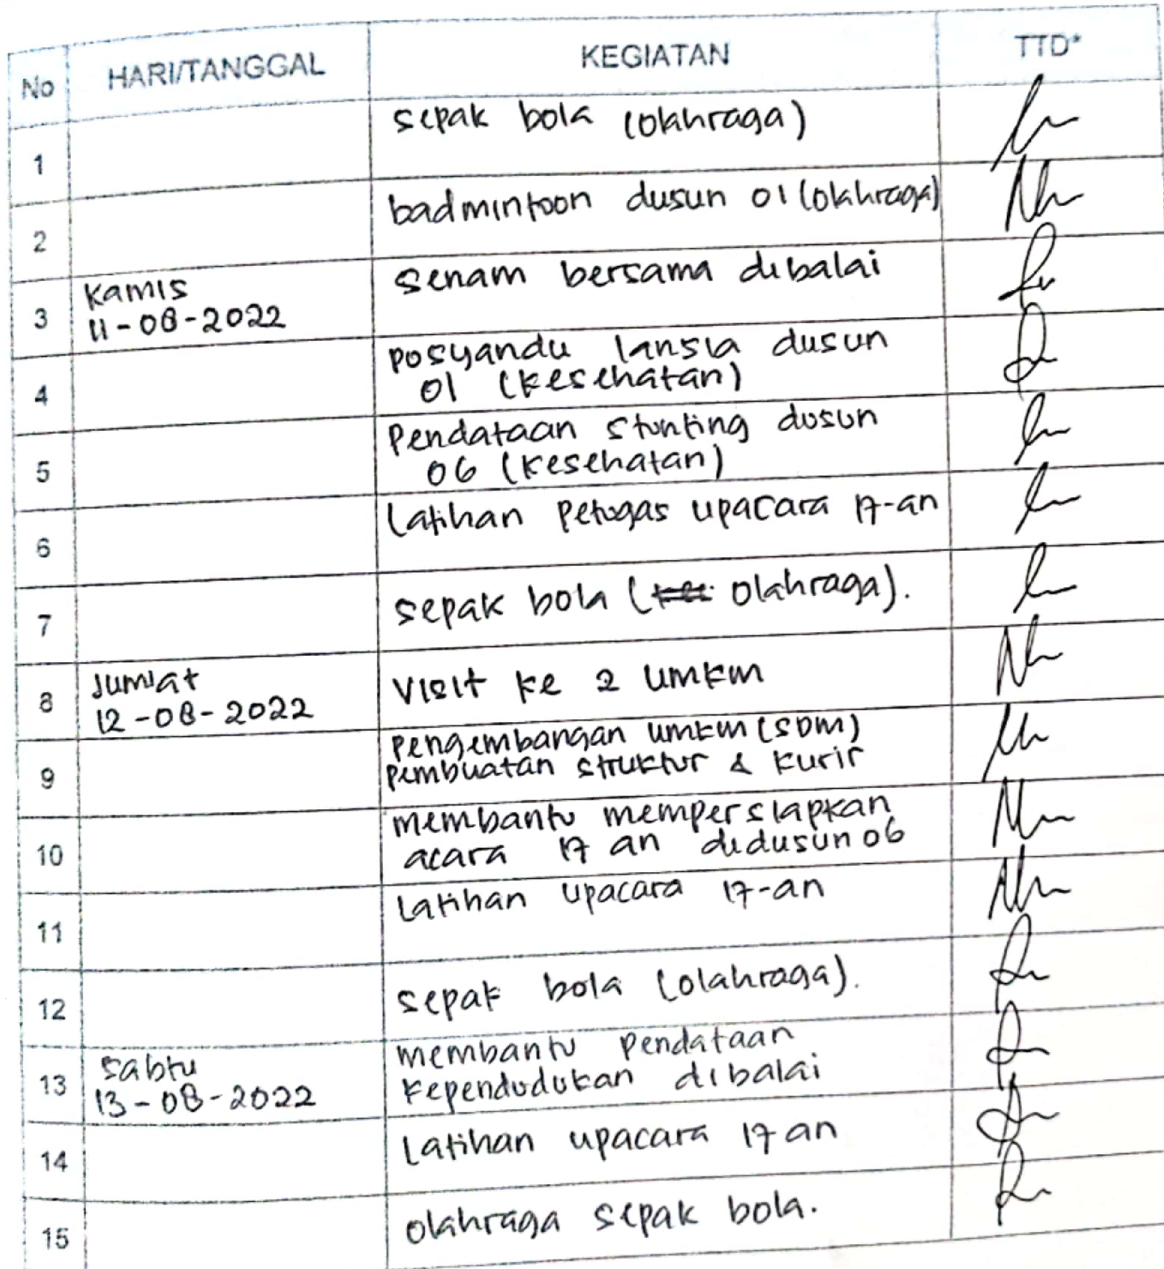 No HARI/TANGGAL KEGIATAN TTD*
1 sepak bola (olahraga)
2 badmintoon dusun 01 (olahraga)
3 Kamis 11-08-2022 senam bersama dibalai
4 posyandu lansia dusun
01 (kesehatan)
5 Pendataan stunting dusun
06 (kesehatan)
6 Latihan petugas upacara 17-an
7 sepak bola ( olahraga).
8 Jum'at 12-08-2022 visit ke 2 umkm
9 pengembangan umkm (SDM)
pembuatan struktur & kurir
10 membantu mempersiapkan
acara 17 an didusun 06
11 Latihan upacara 17-an
12 sepak bola (olahraga).
13 Sabtu 13-08-2022 membantu pendataan
kependudukan dibalai
14 Latihan upacara 17 an
15 olahraga sepak bola.